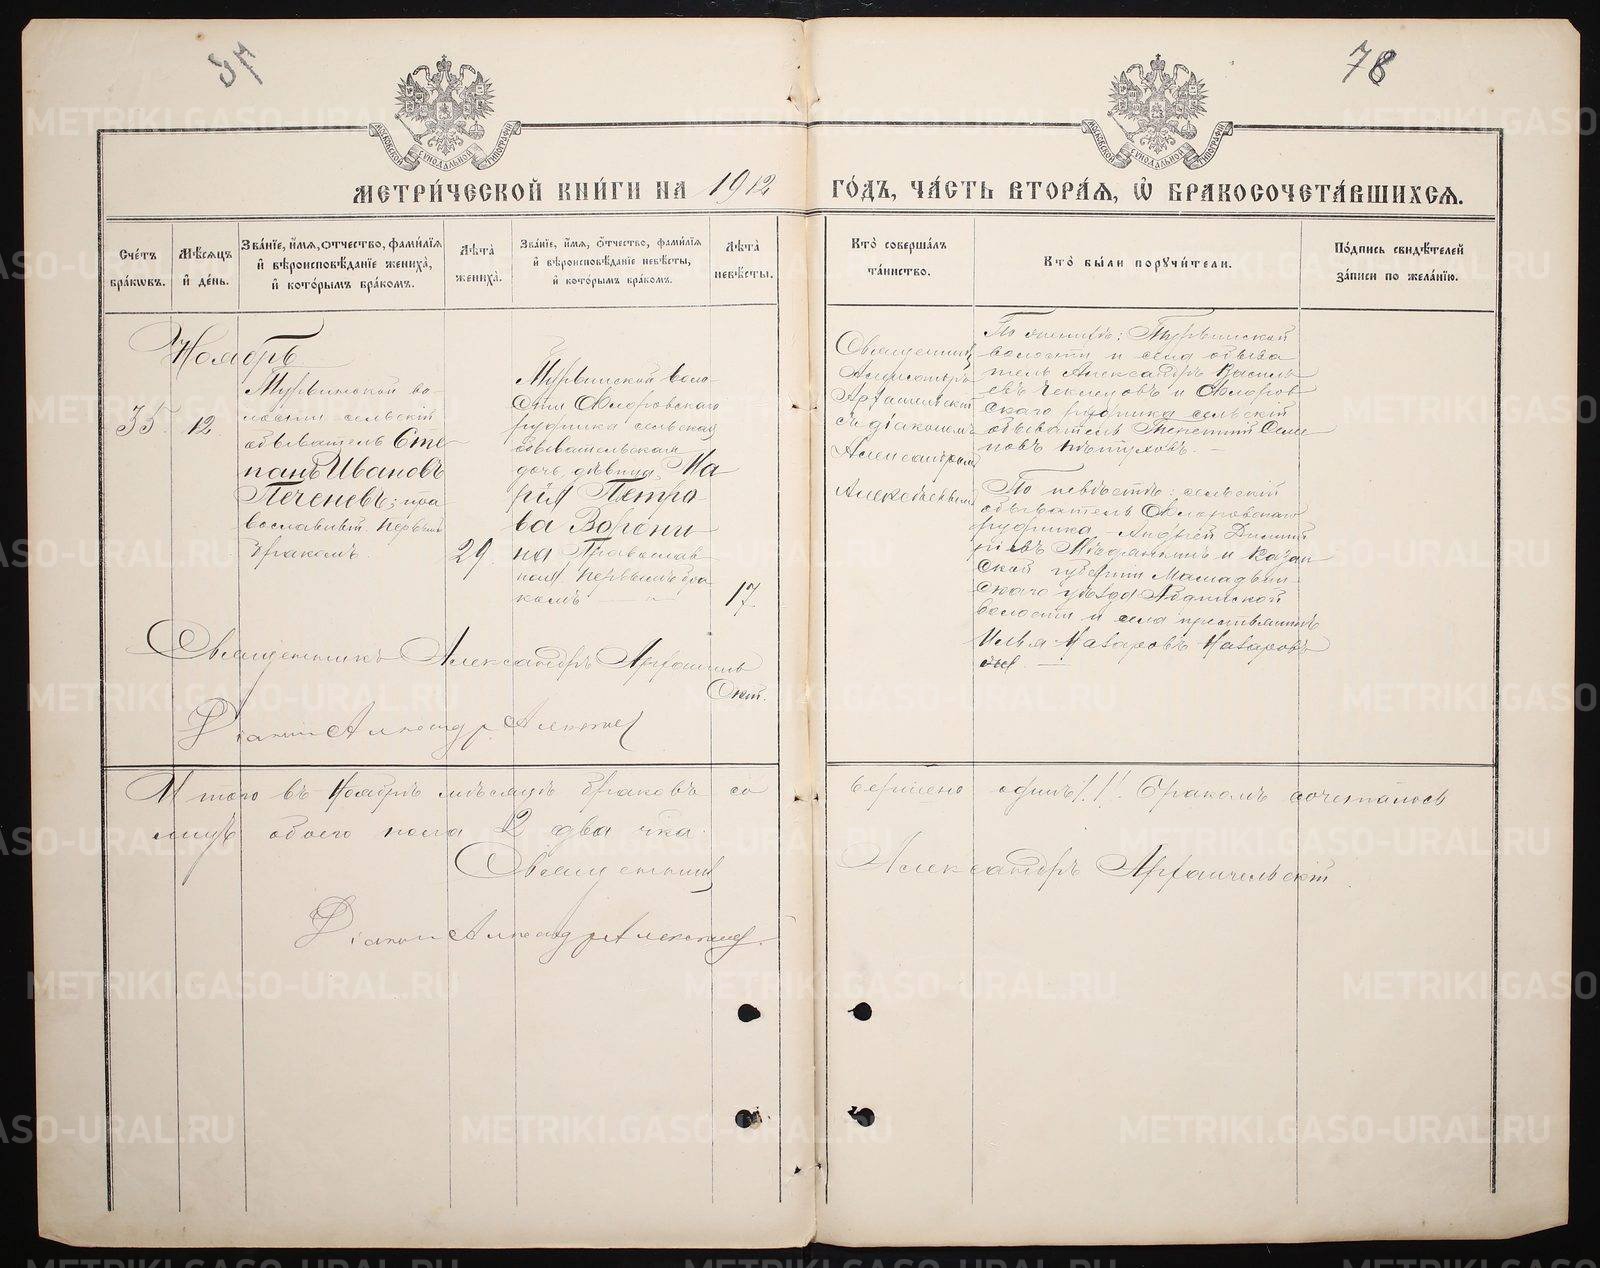 78
МОСКОВСКОЙ СѴНОДАЛЬНОЙ ТИПОГРАФІИ
МОСКОВСКОЙ СѴНОДАЛЬНОЙ ТИПОГРАФІИ
МЕТРИ́ЧЕСКОЙ КНИ́ГИ НА 1912 ГО́ДЪ, ЧА́СТЬ ВТОРА́Я, Ѡ҆ БРАКОСОЧЕТА́ВШИХСЯ.
Сче́тъ бра́ковъ.
Мѣ́сяцъ и҆ де́нь.
Зва́нїе, и҆́мя, ѻ҆́тчество, фами́лїя и҆ вѣроисповѣ́данїе жениха̀, и҆ кото́рымъ бра́комъ.
Лѣ́та жениха̀.
Зва́нїе, и҆́мя, ѻ҆́тчество, фами́лїя и҆ вѣроисповѣ́данїе невѣ́сты, и҆ кото́рымъ бра́комъ.
Лѣ́та невѣ́сты.
Кто̀ соверша́лъ та́инство.
Кто̀ бы́ли порꙋчи́тели.
По́дпись свидѣ́телей за́писи по жела́нїю.
Ноябрь
35.
12
во-
лости сельскій
обыватель Сте
панъ Ивановъ
Печеневъ; пра
вославный первымъ
бракомъ.
29.
воло-
сти Ѳедоровскаго
рудника сельская
обывательская
дочь, дѣвица, Ма
рія Петро
ва Ворони
на Православ
ная. первымъ бра
комъ
17.
Священникъ
Александръ
Архангельскій
съ діакономъ
Александромъ
Алексѣевымъ
По женихѣ:
волости и села обыва
тель Александръ Василь
евъ и Ѳедоров
скаго рудника сельскій
обыватель Семе
новъ Пѣтуховъ.
По невѣстѣ: сельскій
обыватель Ѳедоровскаго
рудника Андрей Димит
ріевъ и Казан
ской губерніи Мамадыш
скаго уѣзда Абдинской
волости и села крестьянинъ
Илья Назаровъ Назаровъ
Священникъ Александръ Архангель
скій.
Діаконъ Александръ Алексѣевъ
Итого въ Ноябрѣ мѣсяцѣ браковъ со
вершено одинъ /1/. Бракомъ сочеталось
лицъ обоего пола 2 два чка.
Священникъ Александръ Архангельскій
Діаконъ Александръ Алексѣевъ.
METRIKI.GASO-URAL.RU